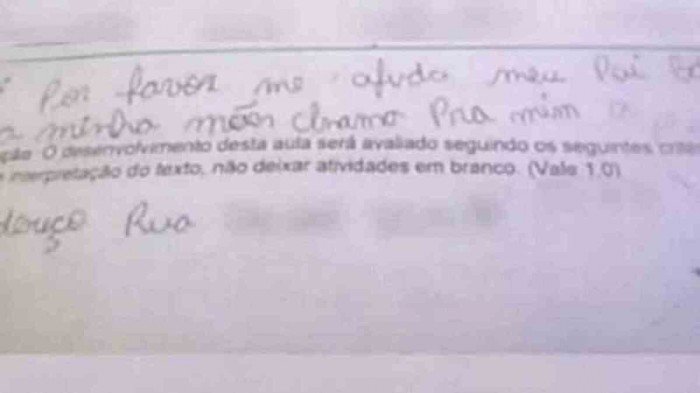 Por favor me ajuda meu Pai
minha mãe chrama Pra mim a
ção O desenvolvimento desta aula será avaliado seguindo os seguintes
interpretação do texto, não deixar atividades em branco. (Vale 1.0)
Rua